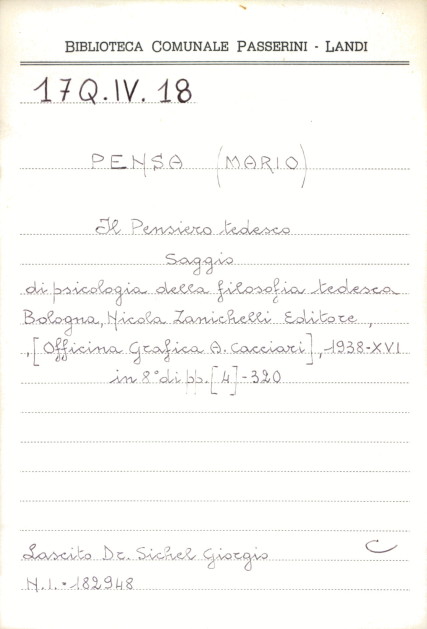 BIBLIOTECA COMUNALE PASSERINI - LANDI
17Q.IV.18
PENSA (MARIO)
Il Pensiero tedesco
Saggio
di psicologia della filosofia tedesca
Bologna, Nicola Zanichelli Editore,
,[Officina Grafica A. Cacciari], 1938-XVI
in 8° di pp. [4]-320
Lascito Dr. Sichel Giorgio
C
N.I. • 182948